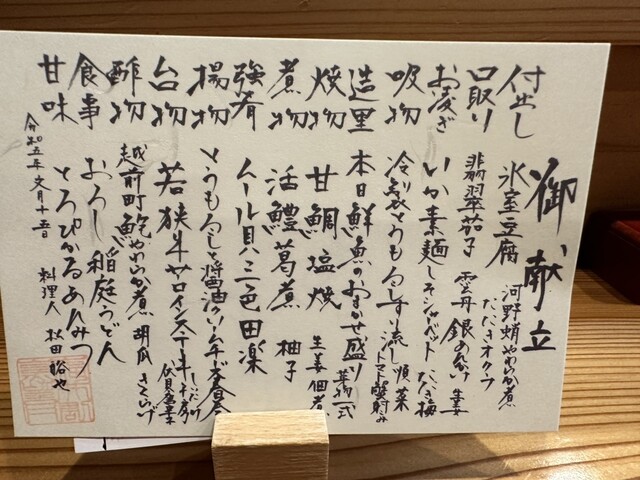 御献立
付出し 氷室豆腐 河野蛸やわらか煮
たたきオクラ
口取り 翡翠茄子 雲丹 銀あんかけ 生姜
お凌ぎ いか素麺 しそシャーベット たたき梅
吸物 冷製とうもろこしすり流し 順菜
トマト
造里 本日鮮魚のおまかせ盛り 薬物一式
焼物 甘鯛塩焼 生姜佃煮
煮物 活鱧葛煮 柚子
強肴 ムール貝三色田楽
揚物 とうもろこしと醤油クリームチーズ春巻
台物 若狭牛サロインステーキ しいたけ
酢物 越前町鮑やわらか煮 胡瓜 きくらげ
食事 おろし稲庭うどん
甘味 とろぴかるあんみつ
令和五年文月十五日 料理人